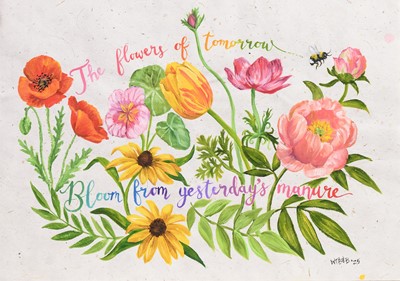 The flowers of tomorrow
Bloom from yesterday's manure